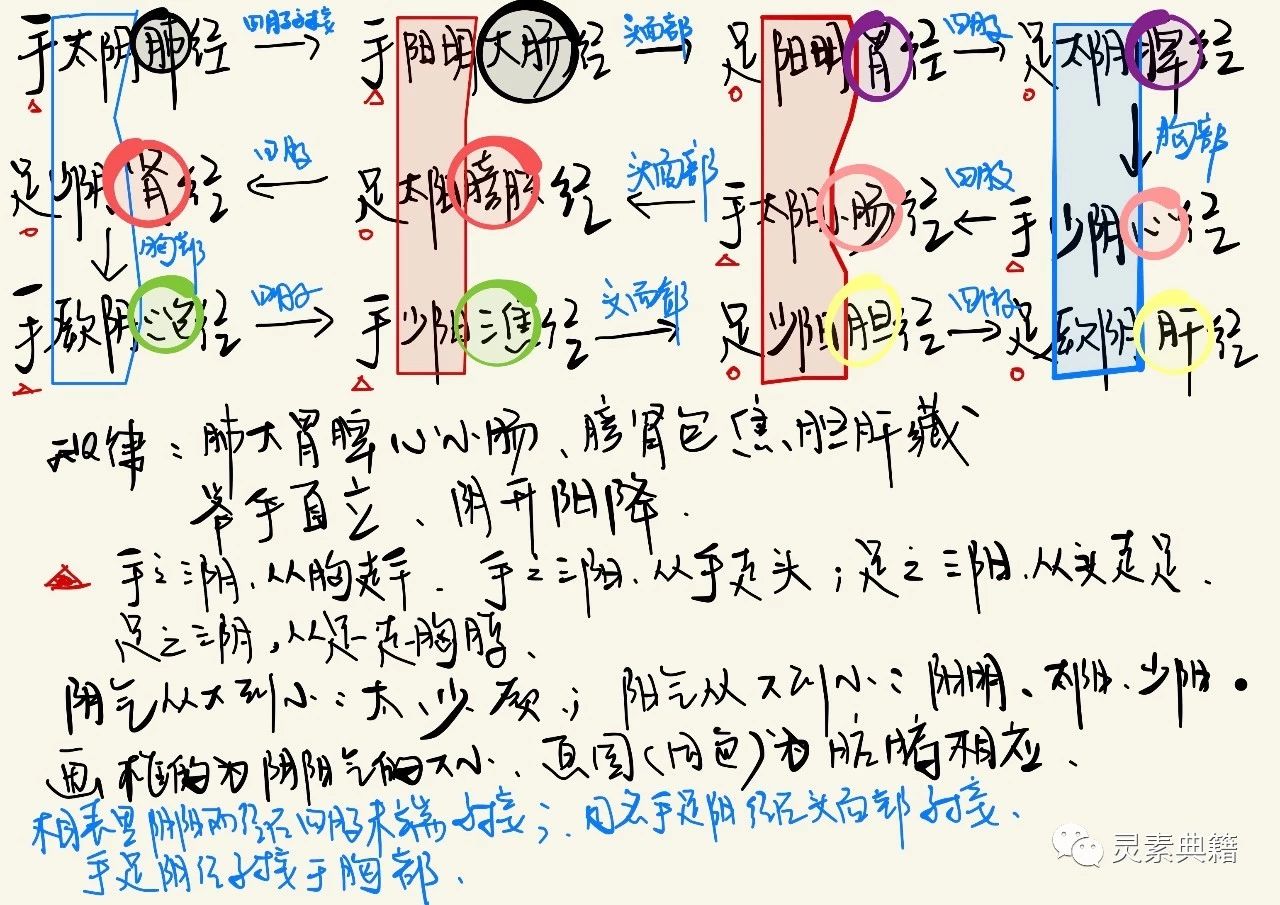 手太阴肺经 四肢对接 手阳明大肠经 头面部 足阳明胃经 四肢 足太阴脾经
胸部
足少阴肾经 四肢 足太阳膀胱经 头面部 手太阳小肠经 四肢 手少阴心经
胸部
手厥阴心包经 四肢 手少阳三焦经 头面部 足少阳胆经 四肢 足厥阴肝经
规律：肺大胃脾心小肠、膀肾包焦胆肝藏
举手直立、阴升阳降.
手之三阴.从胸走手.手之三阳.从手走头；足之三阳.从头走足.
足之三阴，从足走胸腹.
阴气从大到小：太、少、厥；阳气从大到小：阳明、太阳、少阳.
画框的为阴阳气的大小.画圆(同色)为脏腑相应.
相表里阴阳两经在四肢末端对接；同名手足阳经在头面部对接.
手足阴经对接于胸部.
灵素典籍